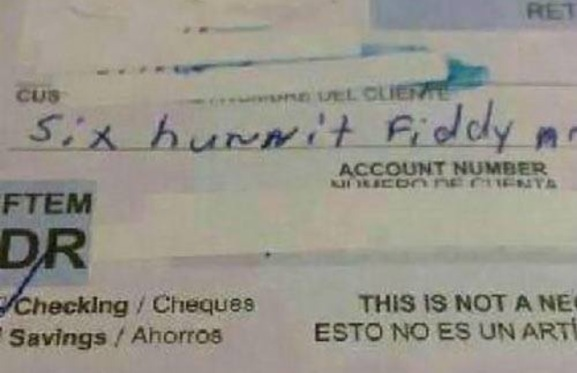 RET
CUS DEL CLIENTE
Six hunnit Fiddy
ACCOUNT NUMBER
NUMERO DE CUENTA
FTEM
DR
Checking / Cheques
THIS IS NOT A NE
Savings / Ahorros
ESTO NO ES UN ARTÍ